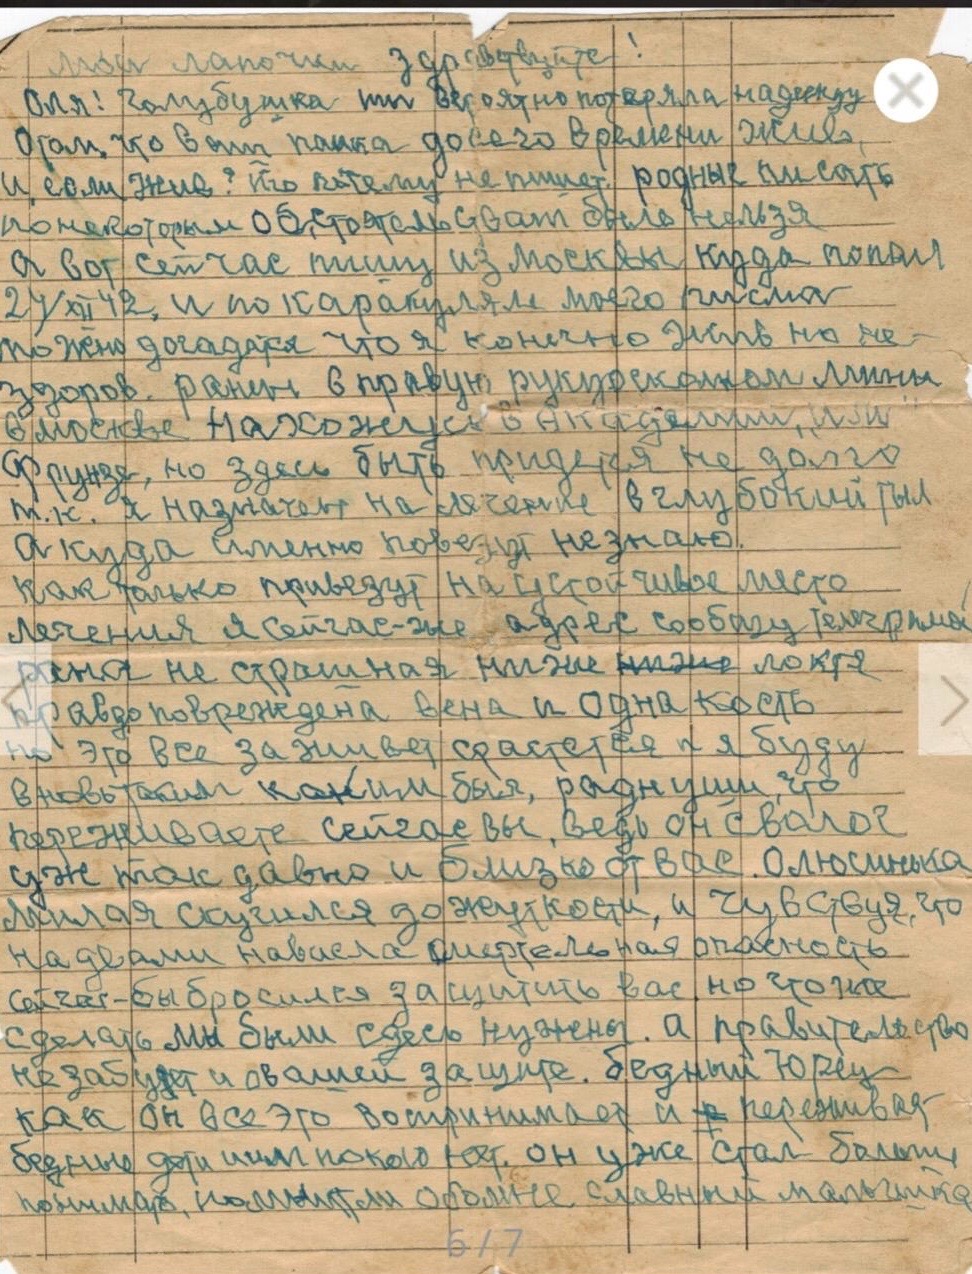 мои лапочки здравствуйте!
Оля! Голубушка ты вероятно потеряла надежду
Отом, что ваш папка досего времени жив,
и если жив? То почему не пишет. родные писать
понекоторым обстоятельствам было нельзя
а вот сейчас пишу из Москвы куда попал
24/XII 42, и по каракулям моего письма
можно догадатся что я конечно жив но не-
здоров. ранен в правую руку осколком мины
в москве нахожусь в Академии "им"
Фрунзе, но здесь быть придется не долго
т.к. я назначен на лечение в глубокий тыл
а куда именно повезут незнаю.
как только привезут на устойчивое место
лечения я сейчас-же адрес сообщу телеграммой
рана не страшная ниже ниже локтя
правда повреждена вена и одна кость
но это все заживет срастется и я буду
вновь таким каким был, роднуши, что
переживаете сейчас вы, ведь он сволоч
уж так давно и близко от вас. Олюсинька
милая скучился до жуткости, и чувствуя, что
надвами нависла смертельная опасность
сейчас-бы бросился защитить вас, но чтоже
сделать мы были сдесь нужены. а правительство
незабудет и овашей защите. бедный Юрец
как он все это воспринимает и переживает
бедные дети им покою нет. он уже стал больше
понимать, обомне славный мальчишка
6/7